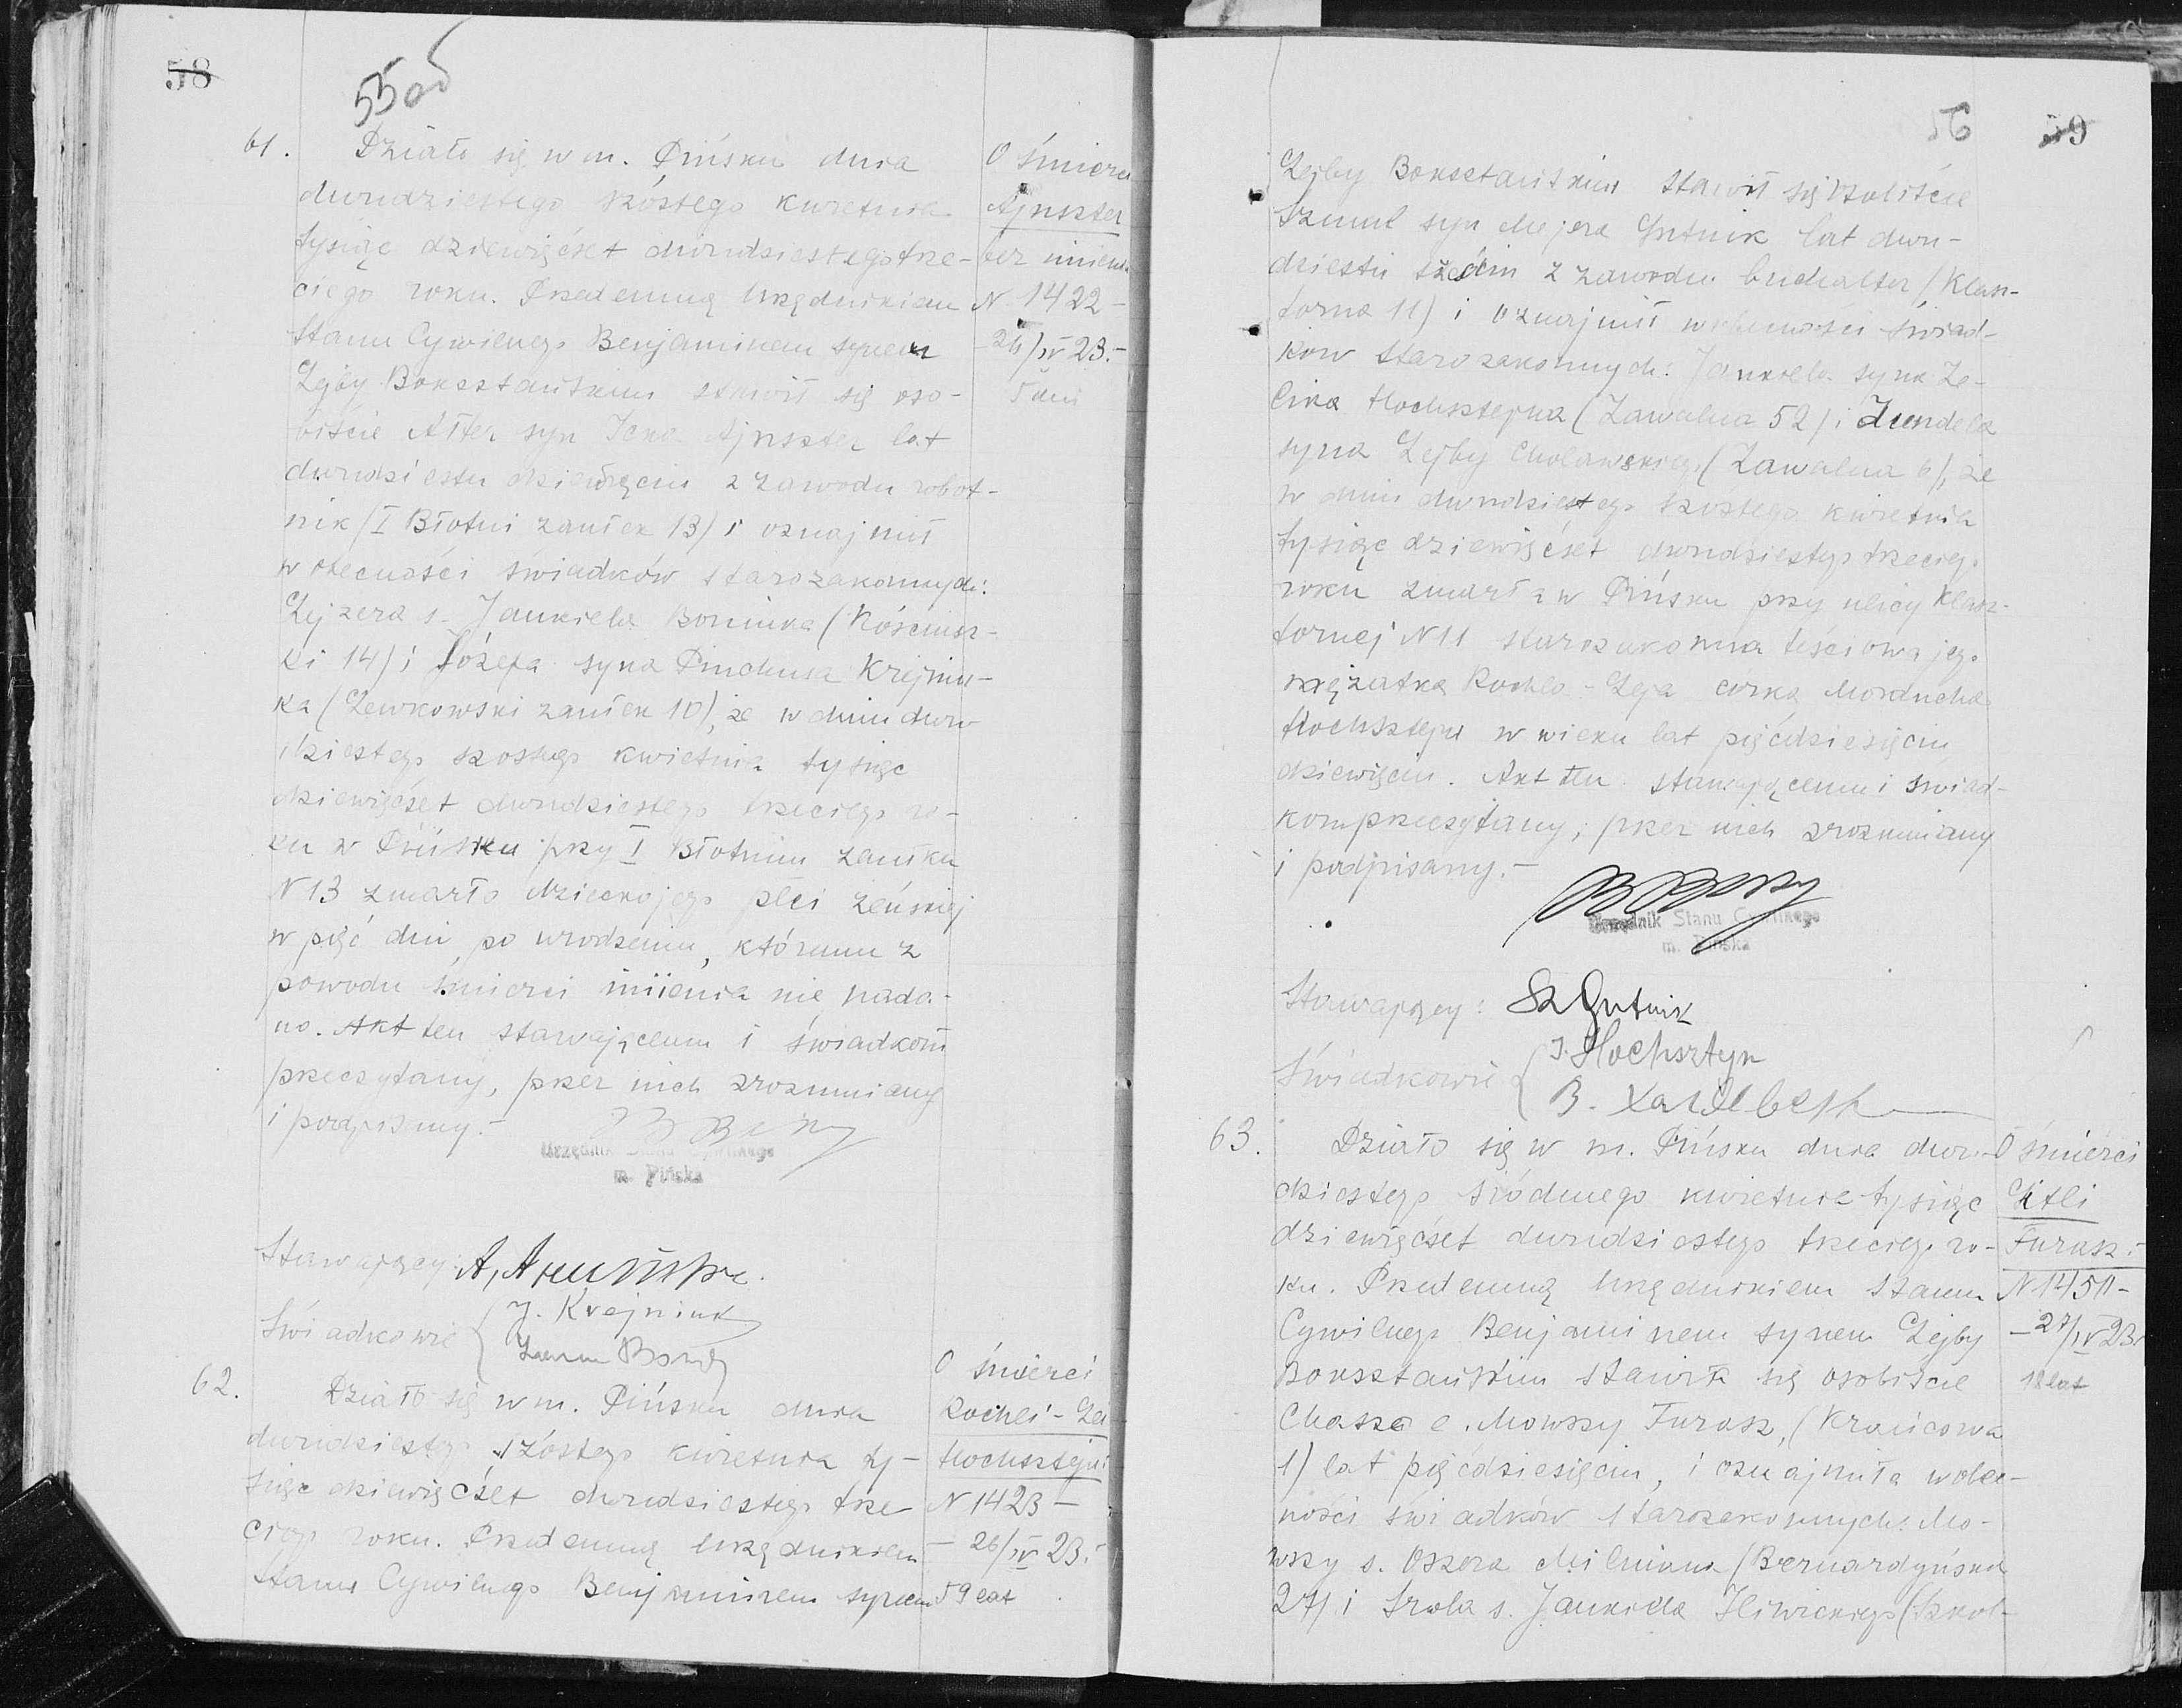 58
55об
61. Działo się w m. Pińsku dnia
dwudziestego szóstego kwietnia
tysiąc dziewięćset dwudziestego trze-
ciego roku. Przedemną Urzędnikiem
Stanu Cywilnego Benjaminem synem
Lejby Boksztańskim stawił się oso-
biście Alter syn Icka Ajnszter lat
dwudziestu dziewięciu z zawodu robot-
nik (I Błotni zaułek 13) i oznajmił
w obecności świadków starozakonnych:
Lejzera s. Jankiela (Kościusz-
ki 14) i Józefa syna Pinchusa Krejniu-
ka (Lewkowski zaułek 10), że w dniu dwu
dziestego szóstego kwietnia tysiąc
dziewięćset dwudziestego trzeciego ro-
ku w Pińsku przy I Błotnim zaułku
N 13 zmarło dziecko jego płci żeńskiej
w pięć dni po urodzeniu, któremu z
powodu śmierci imienia nie nada-
no. Akt ten stawającemu i świadkom
przeczytany, przez nich zrozumiany
i podpisany.-
Urzędnik Stanu Cywilnego
m. Pińska
Stawający:
Świadkowie { J. Krejniuk
O śmierci
Ajnszter
bez imienia
N 1422-
-26/IV 23.-
5 dni
62. Działo się w m. Pińsku dnia
dwudziestego szóstego kwietnia ty-
siąc dziewięćset dwudziestego trze
ciego roku. Przedemną Urzędnikiem
Stanu Cywilnego Benjaminem synem
O śmierci
Rochli-Lei
Hochsztejn
N 1423-
- 26/IV 23.-
59 lat
56 59
Lejby Boksztańskim stawił się osobiście
Szmul syn Mejera Gutnik lat dwu-
dziestu sześciu z zawodu buchalter (Klasz-
torna 11) i oznajmił w obecności świad-
ków starozakonnych: Jankiela syna Ze-
lika Hochsztejna (Zawalna 52) i Zundela
syna Lejby Cholawskiego (Zawalna 6), że
w dniu dwudziestego szóstego kwietnia
tysiąc dziewięćset dwudziestego trzeciego
roku zmarła w Pińsku przy ulicy Klasz-
tornej N 11 starozakonna teściowa jego
mężatka Rochla-Leja córka Morducha
Hochsztejn w wieku lat pięćdziesięciu
dziewięciu. Akt ten stawającemu i świad-
kom przeczytany, przez nich zrozumiany
i podpisany.-
Urzędnik Stanu Cywilnego
m. Pińska
Stawający: Sz Gutnik
Świadkowie { J. Hochsztyn
63. Działo się w m. Pińsku dnia dwu-
dziestego siódmego kwietnia tysiąc
dziewięćset dwudziestego trzeciego ro-
ku. Przedemną Urzędnikiem Stanu
Cywilnego Benjaminem synem Lejby
Boksztańskim stawiła się osobiście
Chasza c. Mowszy Turasz, (Krańcowa
1) lat pięćdziesięciu, i oznajmiła w obec-
ności świadków starozakonnych: Mo-
wszy s. Oszera (Bernardyńska
27) i Srola s. Jankiela (Szkol-
O śmierci
Gitli
Turasz.-
N 14511-
-27/IV 23.
18 lat